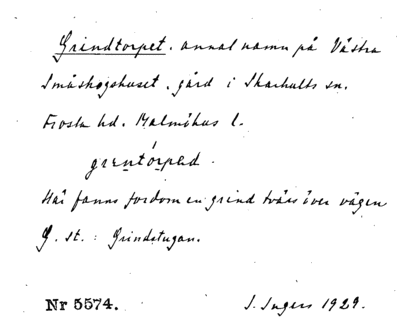 Grindtorpet. annat namn på Västra
Småskogshuset, gård i Skarhults sn.
Frosta hd. Malmöhus l.
grentórpəd.
Här fanns fordom en grind tvärs över vägen
G. st. : Grindstugan.
Nr 5574.
I. Ingers 1929.